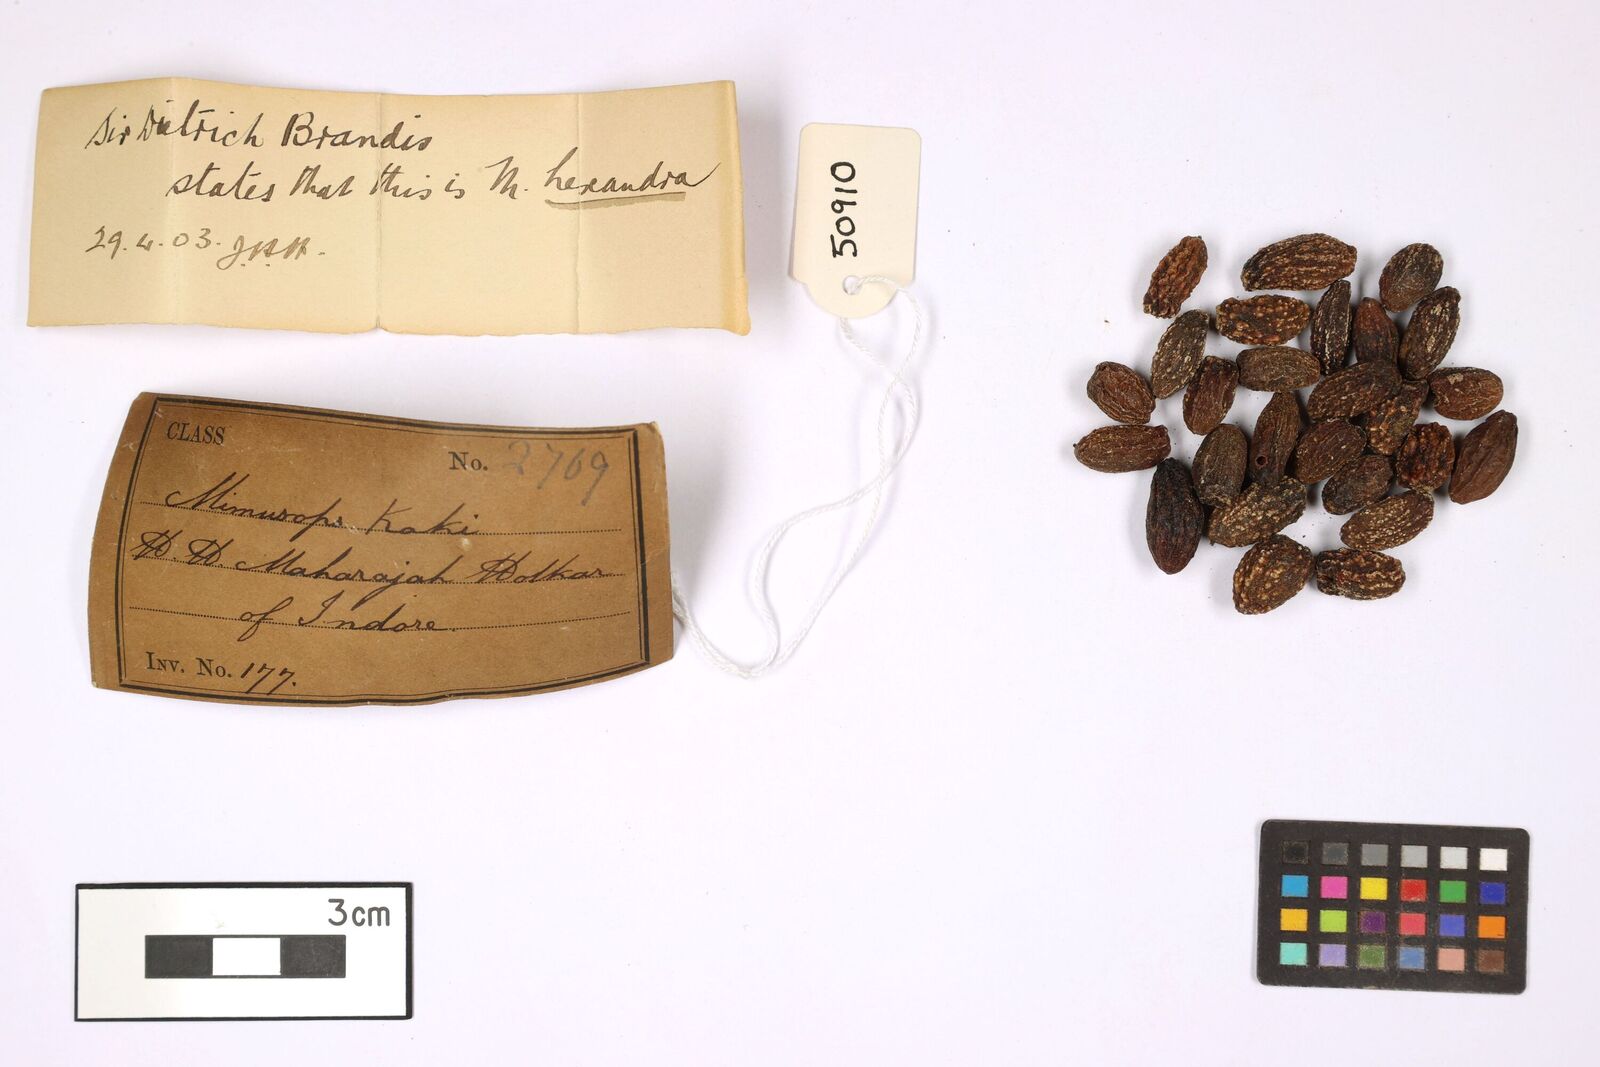 Sir Dietrich Brandis
states that this is M. hexandra
29.4.03. J.H.H.
50910
CLASS
No. 2769
Mimusops Kaki
H. H. Maharajah Holkar
of Indore.
INV. No. 177.
3cm